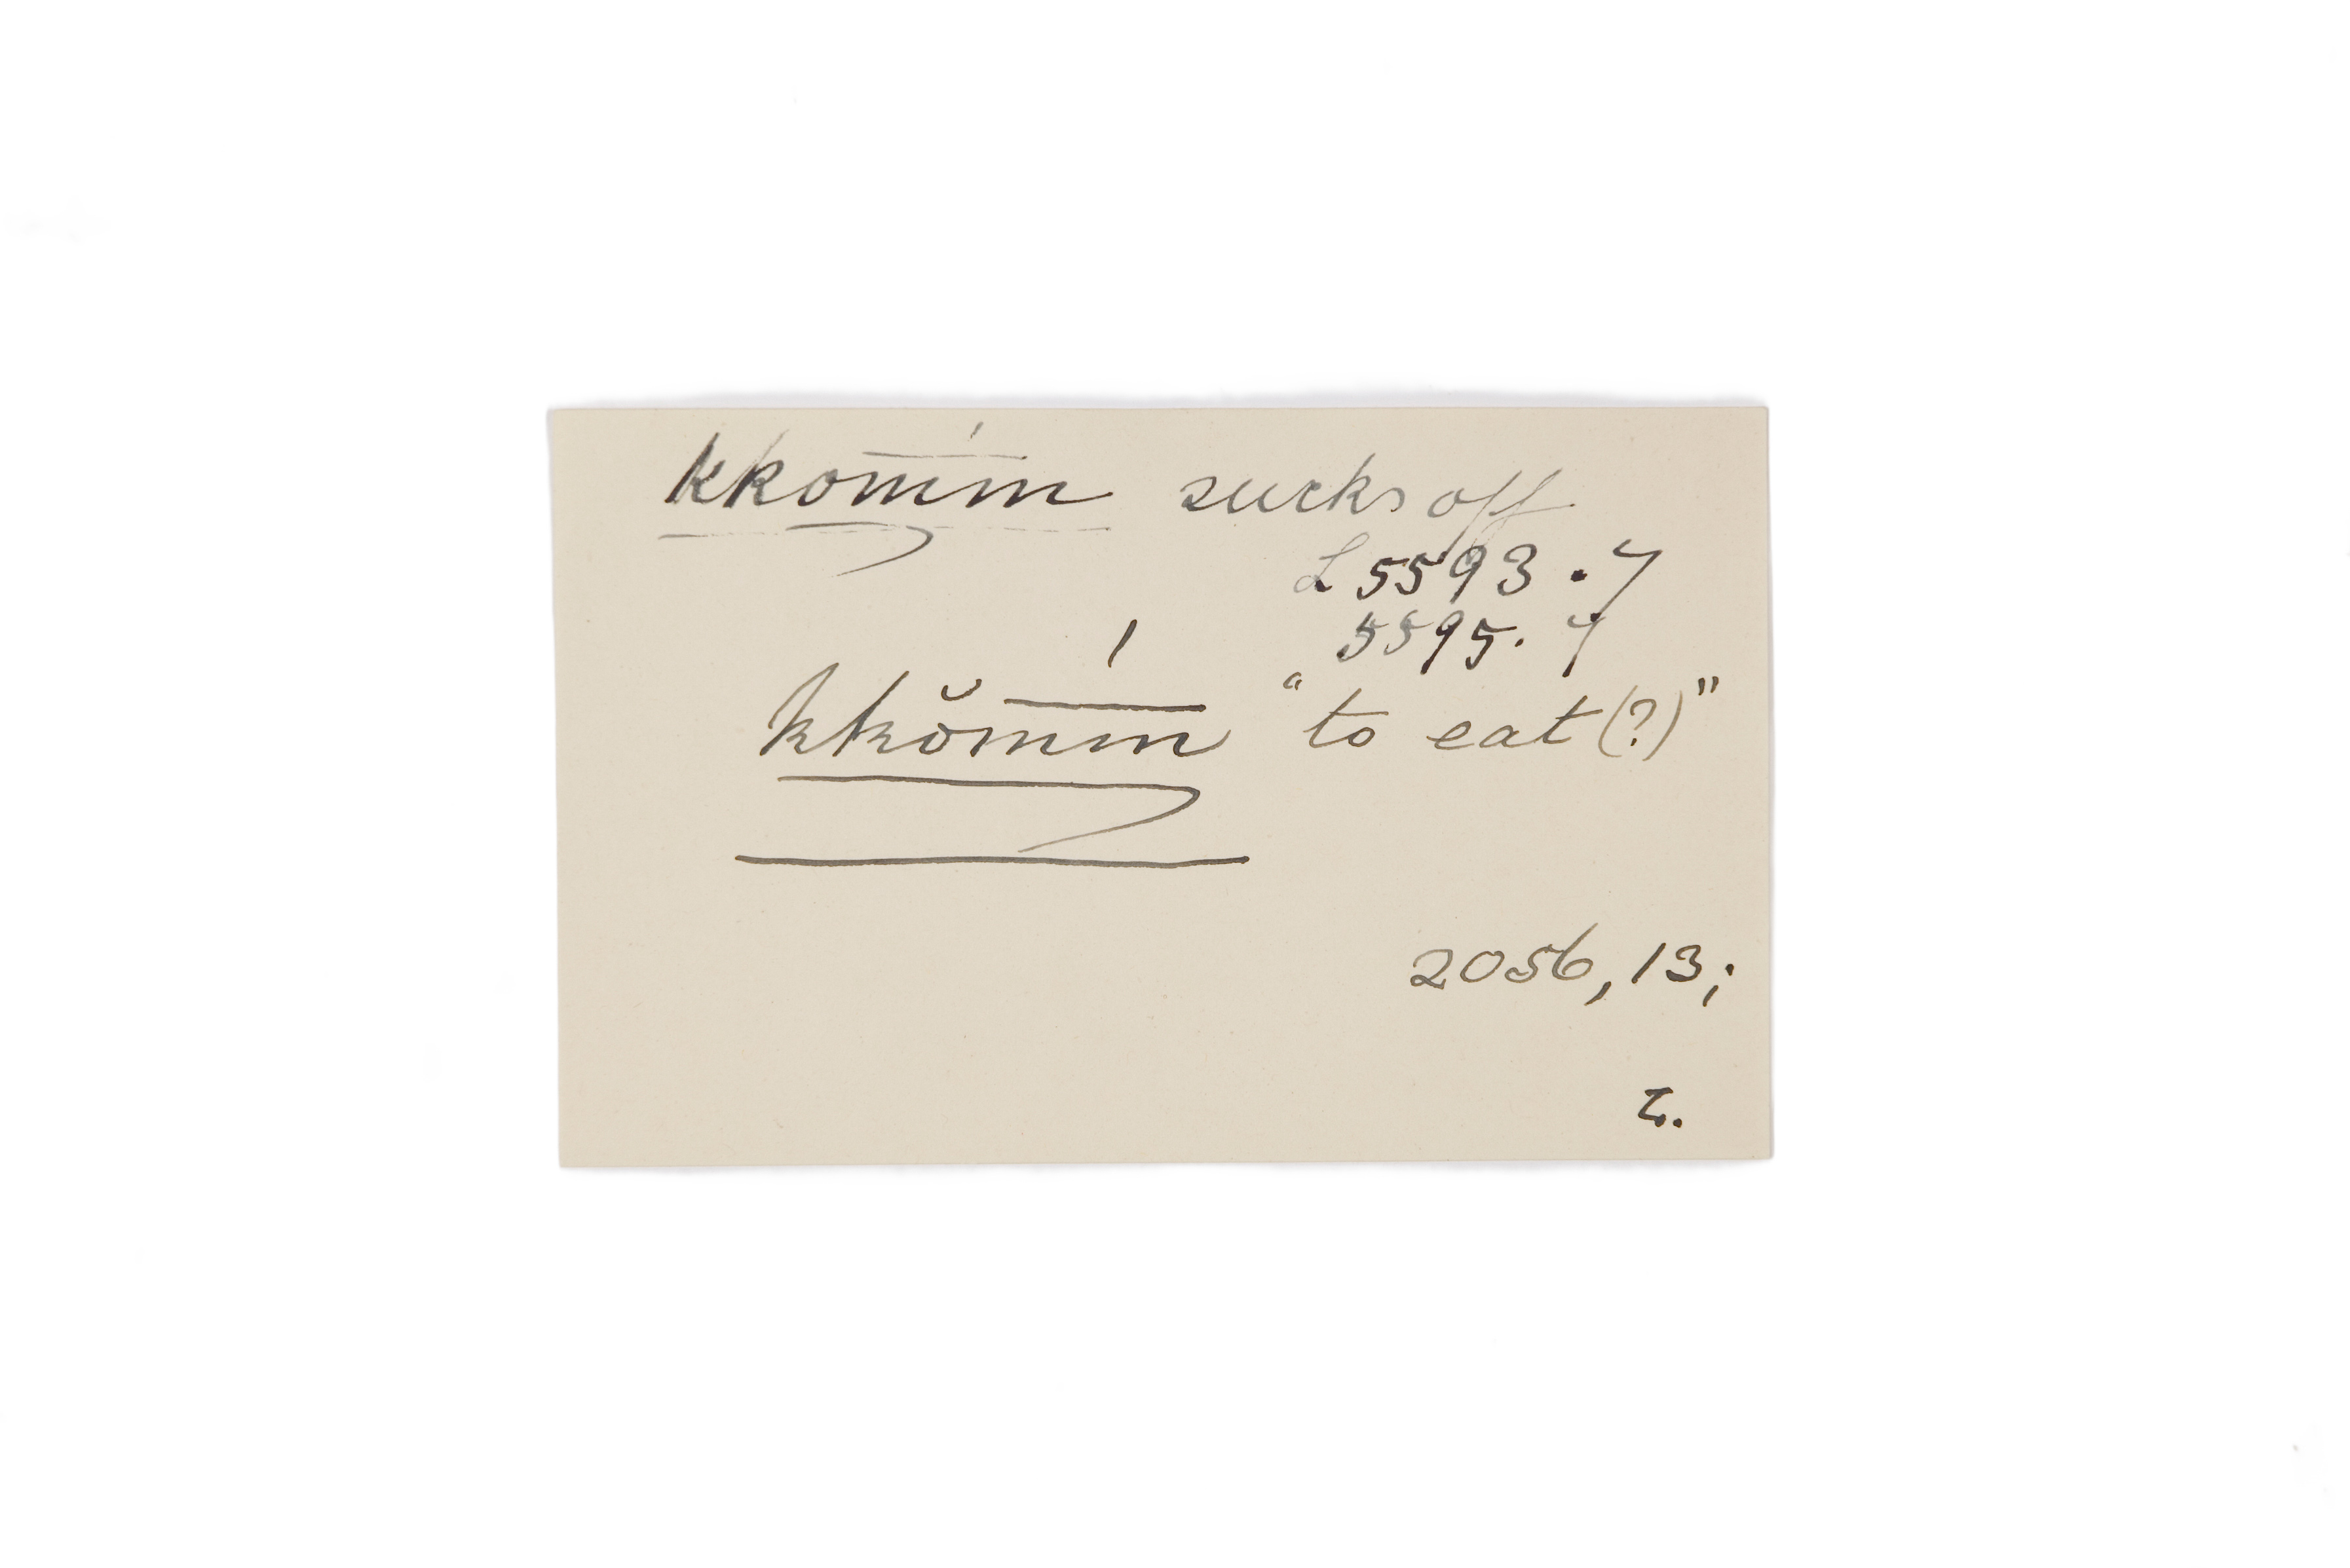 kkom̅́m̅ sucks off
L 5593.7
5595.7
kkŏm̅́m̅ "to eat (?)"
2056, 13;